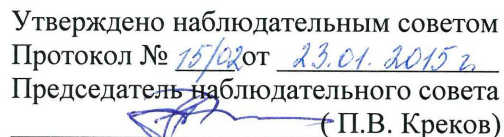 Утверждено наблюдательным советом
Протокол № 15/02от 23.01.2015г.
Председатель наблюдательного совета
( П.В. Креков)